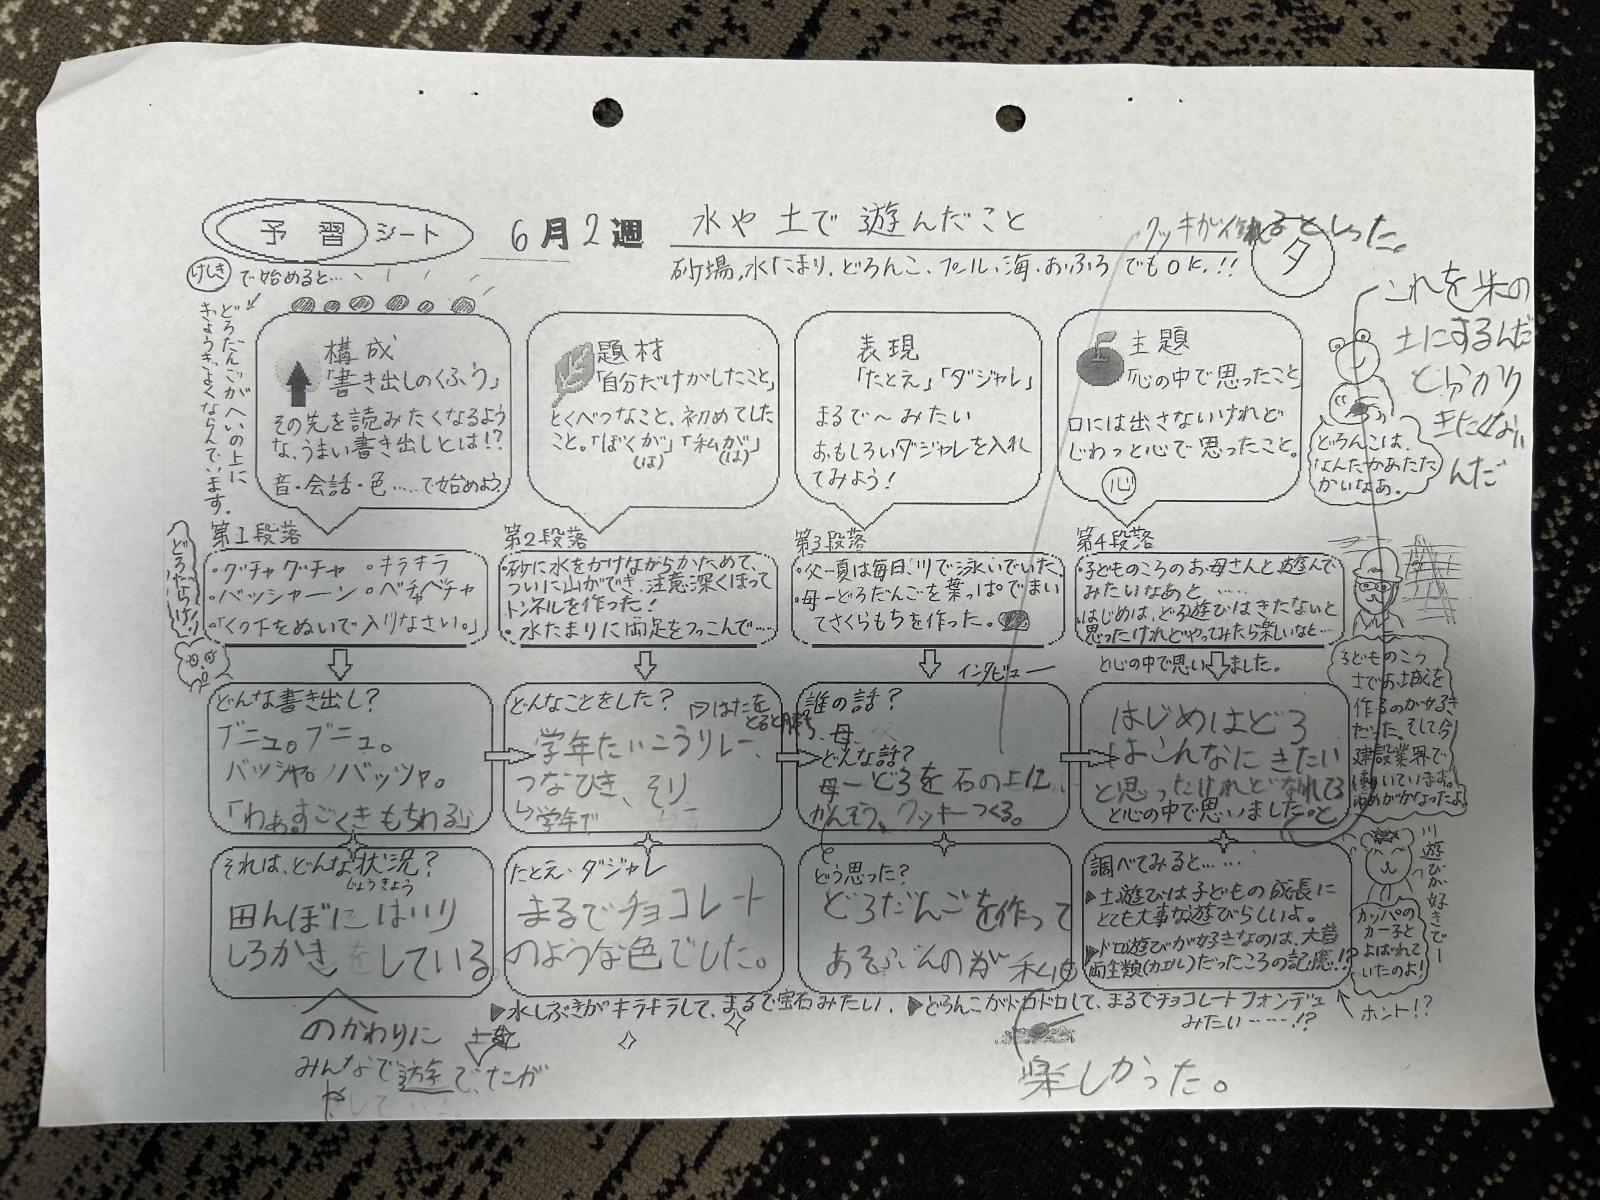 予習シート
6月2週
水や土で遊んだこと
砂場、水たまり、どろんこ、プール、海、おふろでもOK!!
タ
けしきで始めると…
どろだんごがへいの上に
ぎょうぎよくならんでいます。
構成
「書き出しのくふう」
その先を読みたくなるよう
な、うまい書き出しとは!?
音・会話・色……で始めよう。
題材
「自分だけがしたこと」
とくべつなこと、初めてした
こと。「ぼくが」「私が」
(は) (は)
表現
「たとえ」「ダジャレ」
まるで〜みたい
おもしろいダジャレを入れ
てみよう!
主題
「心の中で思ったこと」
口には出さないけれど
じわっと心で思ったこと。
心
どろんこは、
なんだかあたた
かいなあ。
これを米の
土にするんだ
とわかり
きたくない
んだ
第1段落
・グチャグチャ ・キラキラ
・バッシャーン ・ベチャベチャ
・「くつ下をぬいで入りなさい。」
どろだらけ!
第2段落
・砂に水をかけながらかためて、
ついに山ができ、注意深くほって
トンネルを作った!
・水たまりに両足をつっこんで……
第3段落
・父ー夏は毎日、川で泳いでいた。
・母ーどろだんごを葉っぱでまい
てさくらもちを作った。
第4段落
・子どものころのお母さんと遊んで
みたいなあと……
はじめは、どろ遊びはきたないと
思ったけれどやってみたら楽しいなと…
と心の中で思いました。
どんな書き出し?
ブニュ。ブニュ。
バッシャ。バッシャ。
「わあ。すごくきもちわる」
どんなことをした?
はたを
とると勝ち
学年たいこうリレー、
つなひき、そり
学年で
インタビュー
誰の話?
母
どんな話?
母ーどろを石の上に、
かんそう、クッキーつくる。
はじめはどろ
はこんなにきたい
と思ったけれどなれてる
と心の中で思いました。と
子どものころ
土でお城を
作るのが好き
だった。そして今
建設業界で
働いています。
ゆめがかなったよ。
それは、どんな状況?
じょうきょう
田んぼにはいり
しろかきをしている
のかわりに
みんなで遊で、たが
たとえ・ダジャレ
まるでチョコレート
のような色でした。
どう思った?
どろだんごを作って
あそぶんのが私も
楽しかった。
調べてみると……
▶土遊びは子どもの成長に
とても大事な遊びらしいよ。
▶ドロ遊びが好きなのは、大昔
両生類(カエル)だったころの記憶!?
ホント!?
川遊びが好きでー
カッパの
カー子と
よばれて
いたのよ!
▶水しぶきがキラキラして、まるで宝石みたい。
▶どろんこがドロドロして、まるでチョコレートフォンデュ
みたい……!?